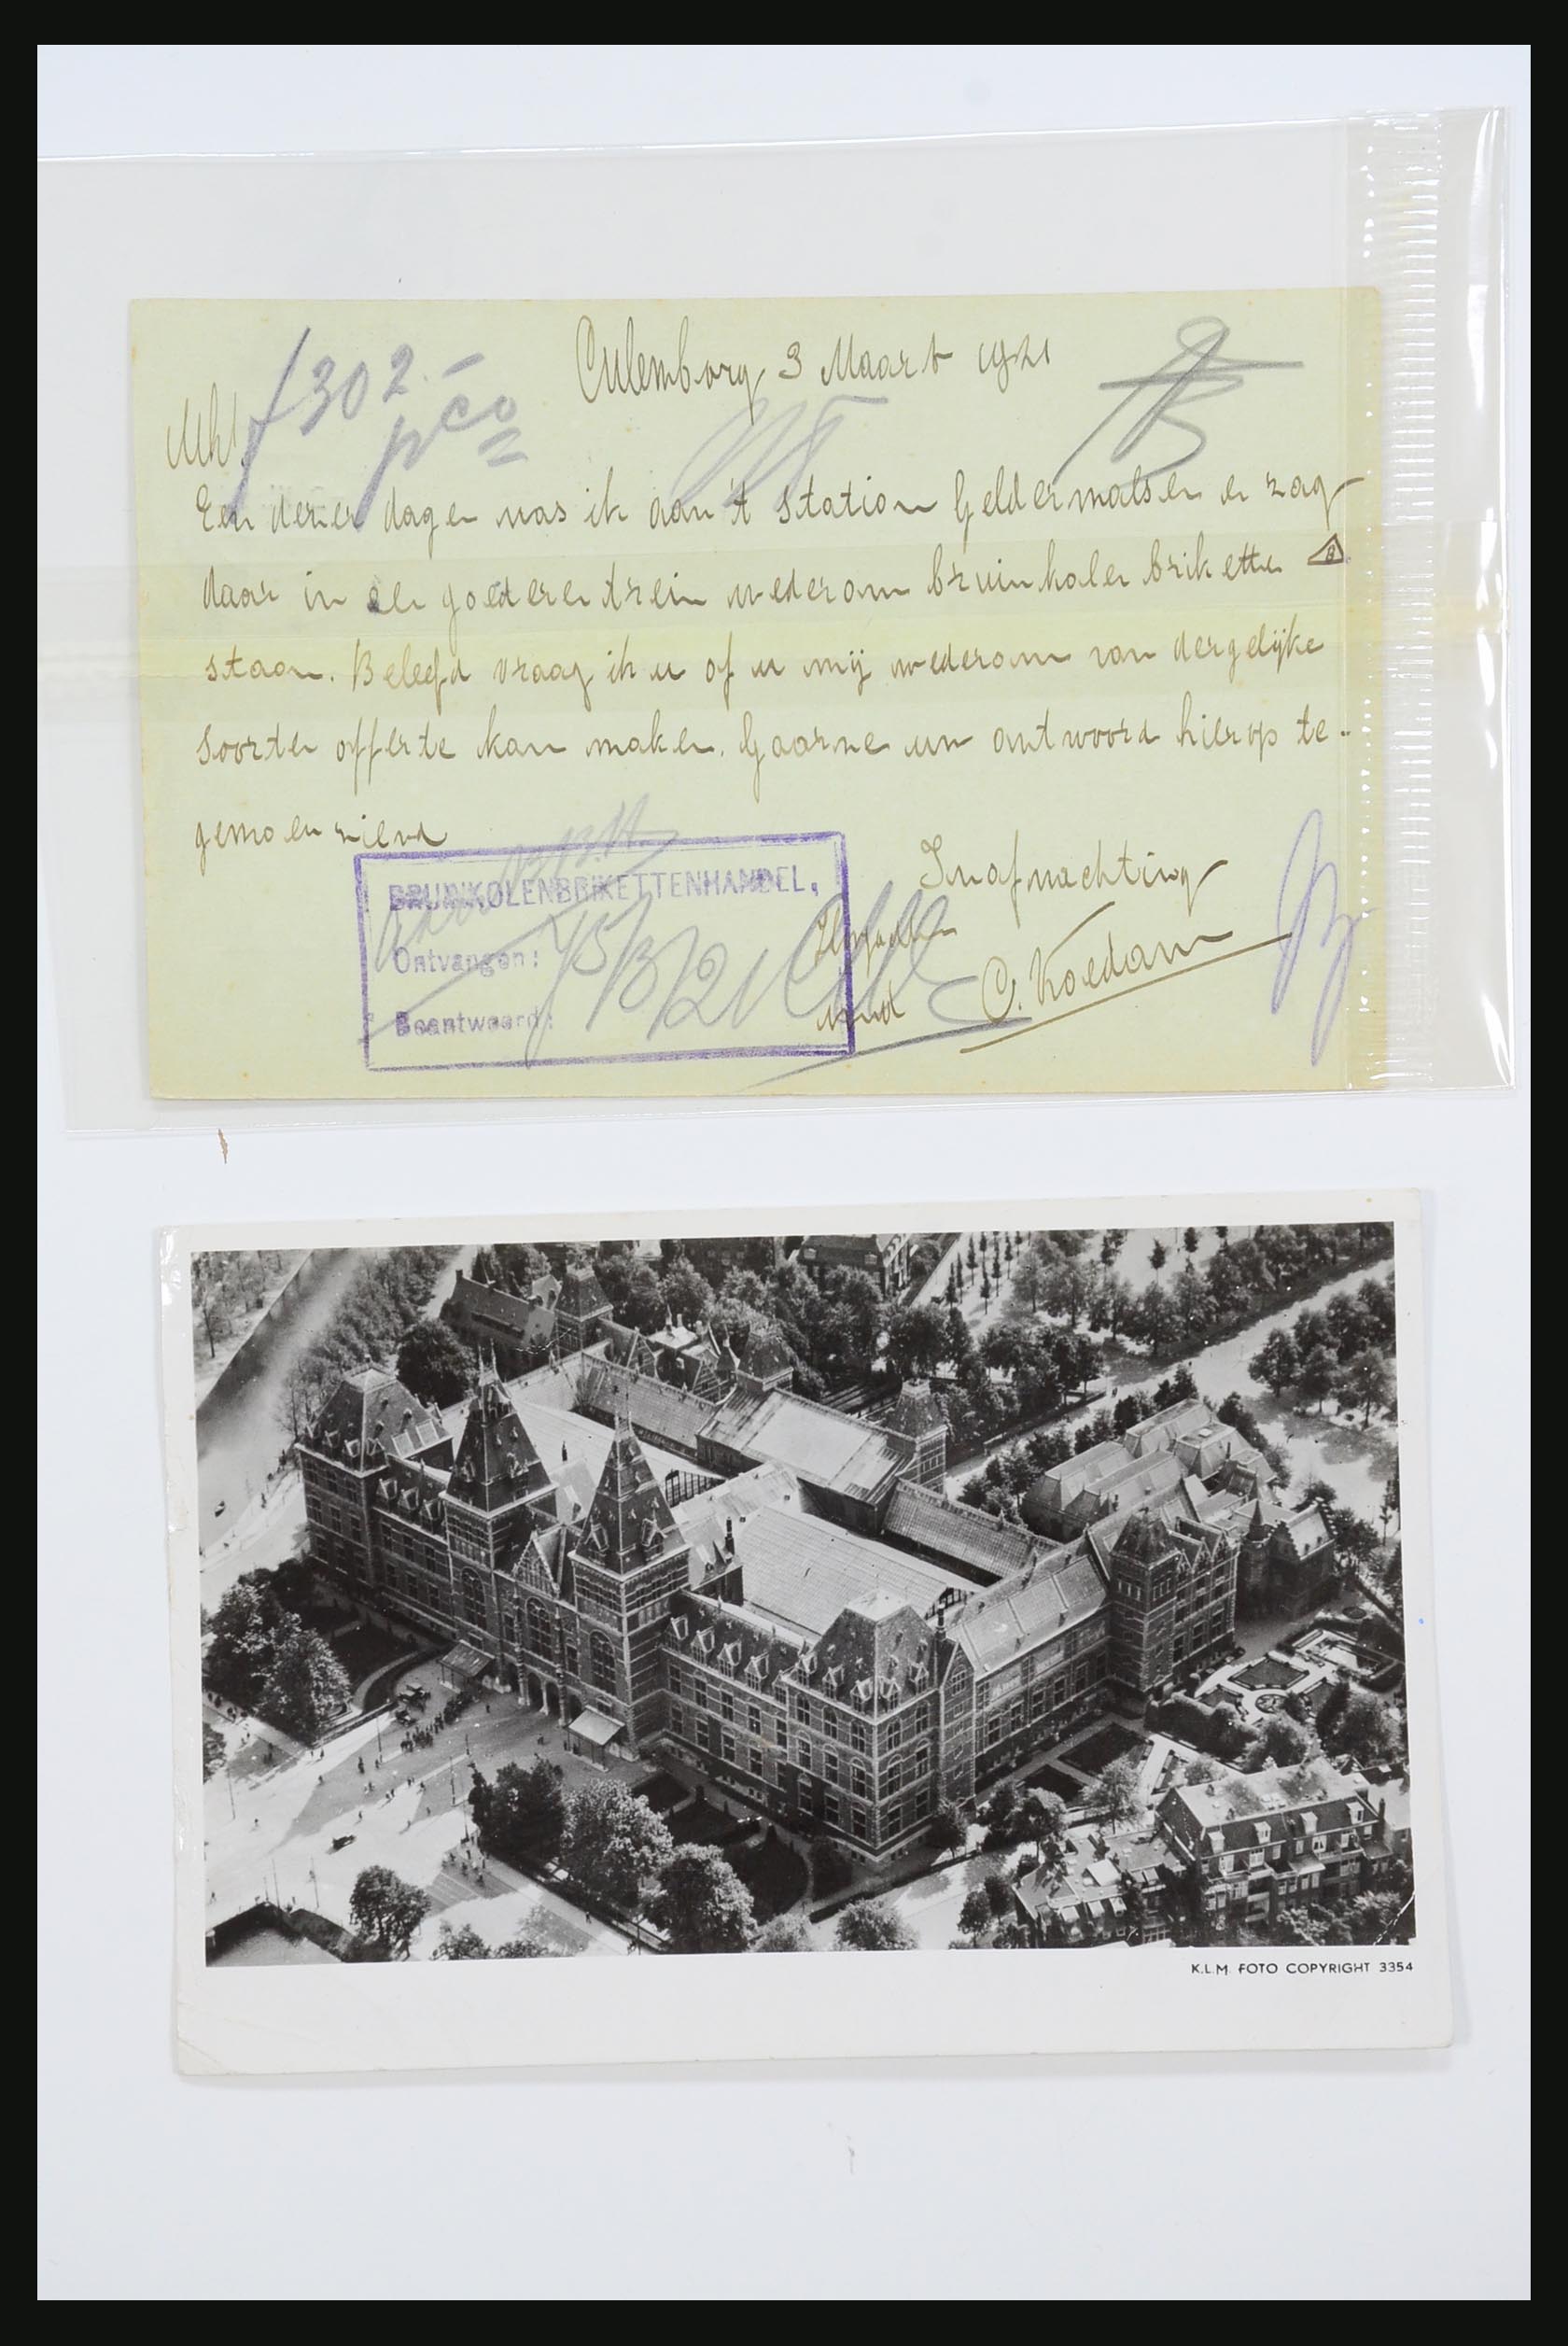 Culemborg 3 Maart 1921
f 302.-
pco
Mh!
Een dezer dagen was ik aan 't station Geldermalsen en zag
daar in een goederentrein wederom bruinkolen briketten B
staan. Beleefd vraag ik u of u mij wederom van dergelijke
soorten offerte kan maken. Gaarne uw antwoord hierop te-
gemoen ziend
In afwachting
Hoogachtend
C. Koedam
BRUINKOLENBRIKETTENHANDEL,
Ontvangen: 5/3/21
Beantwoord:
K.L.M. FOTO COPYRIGHT 3354